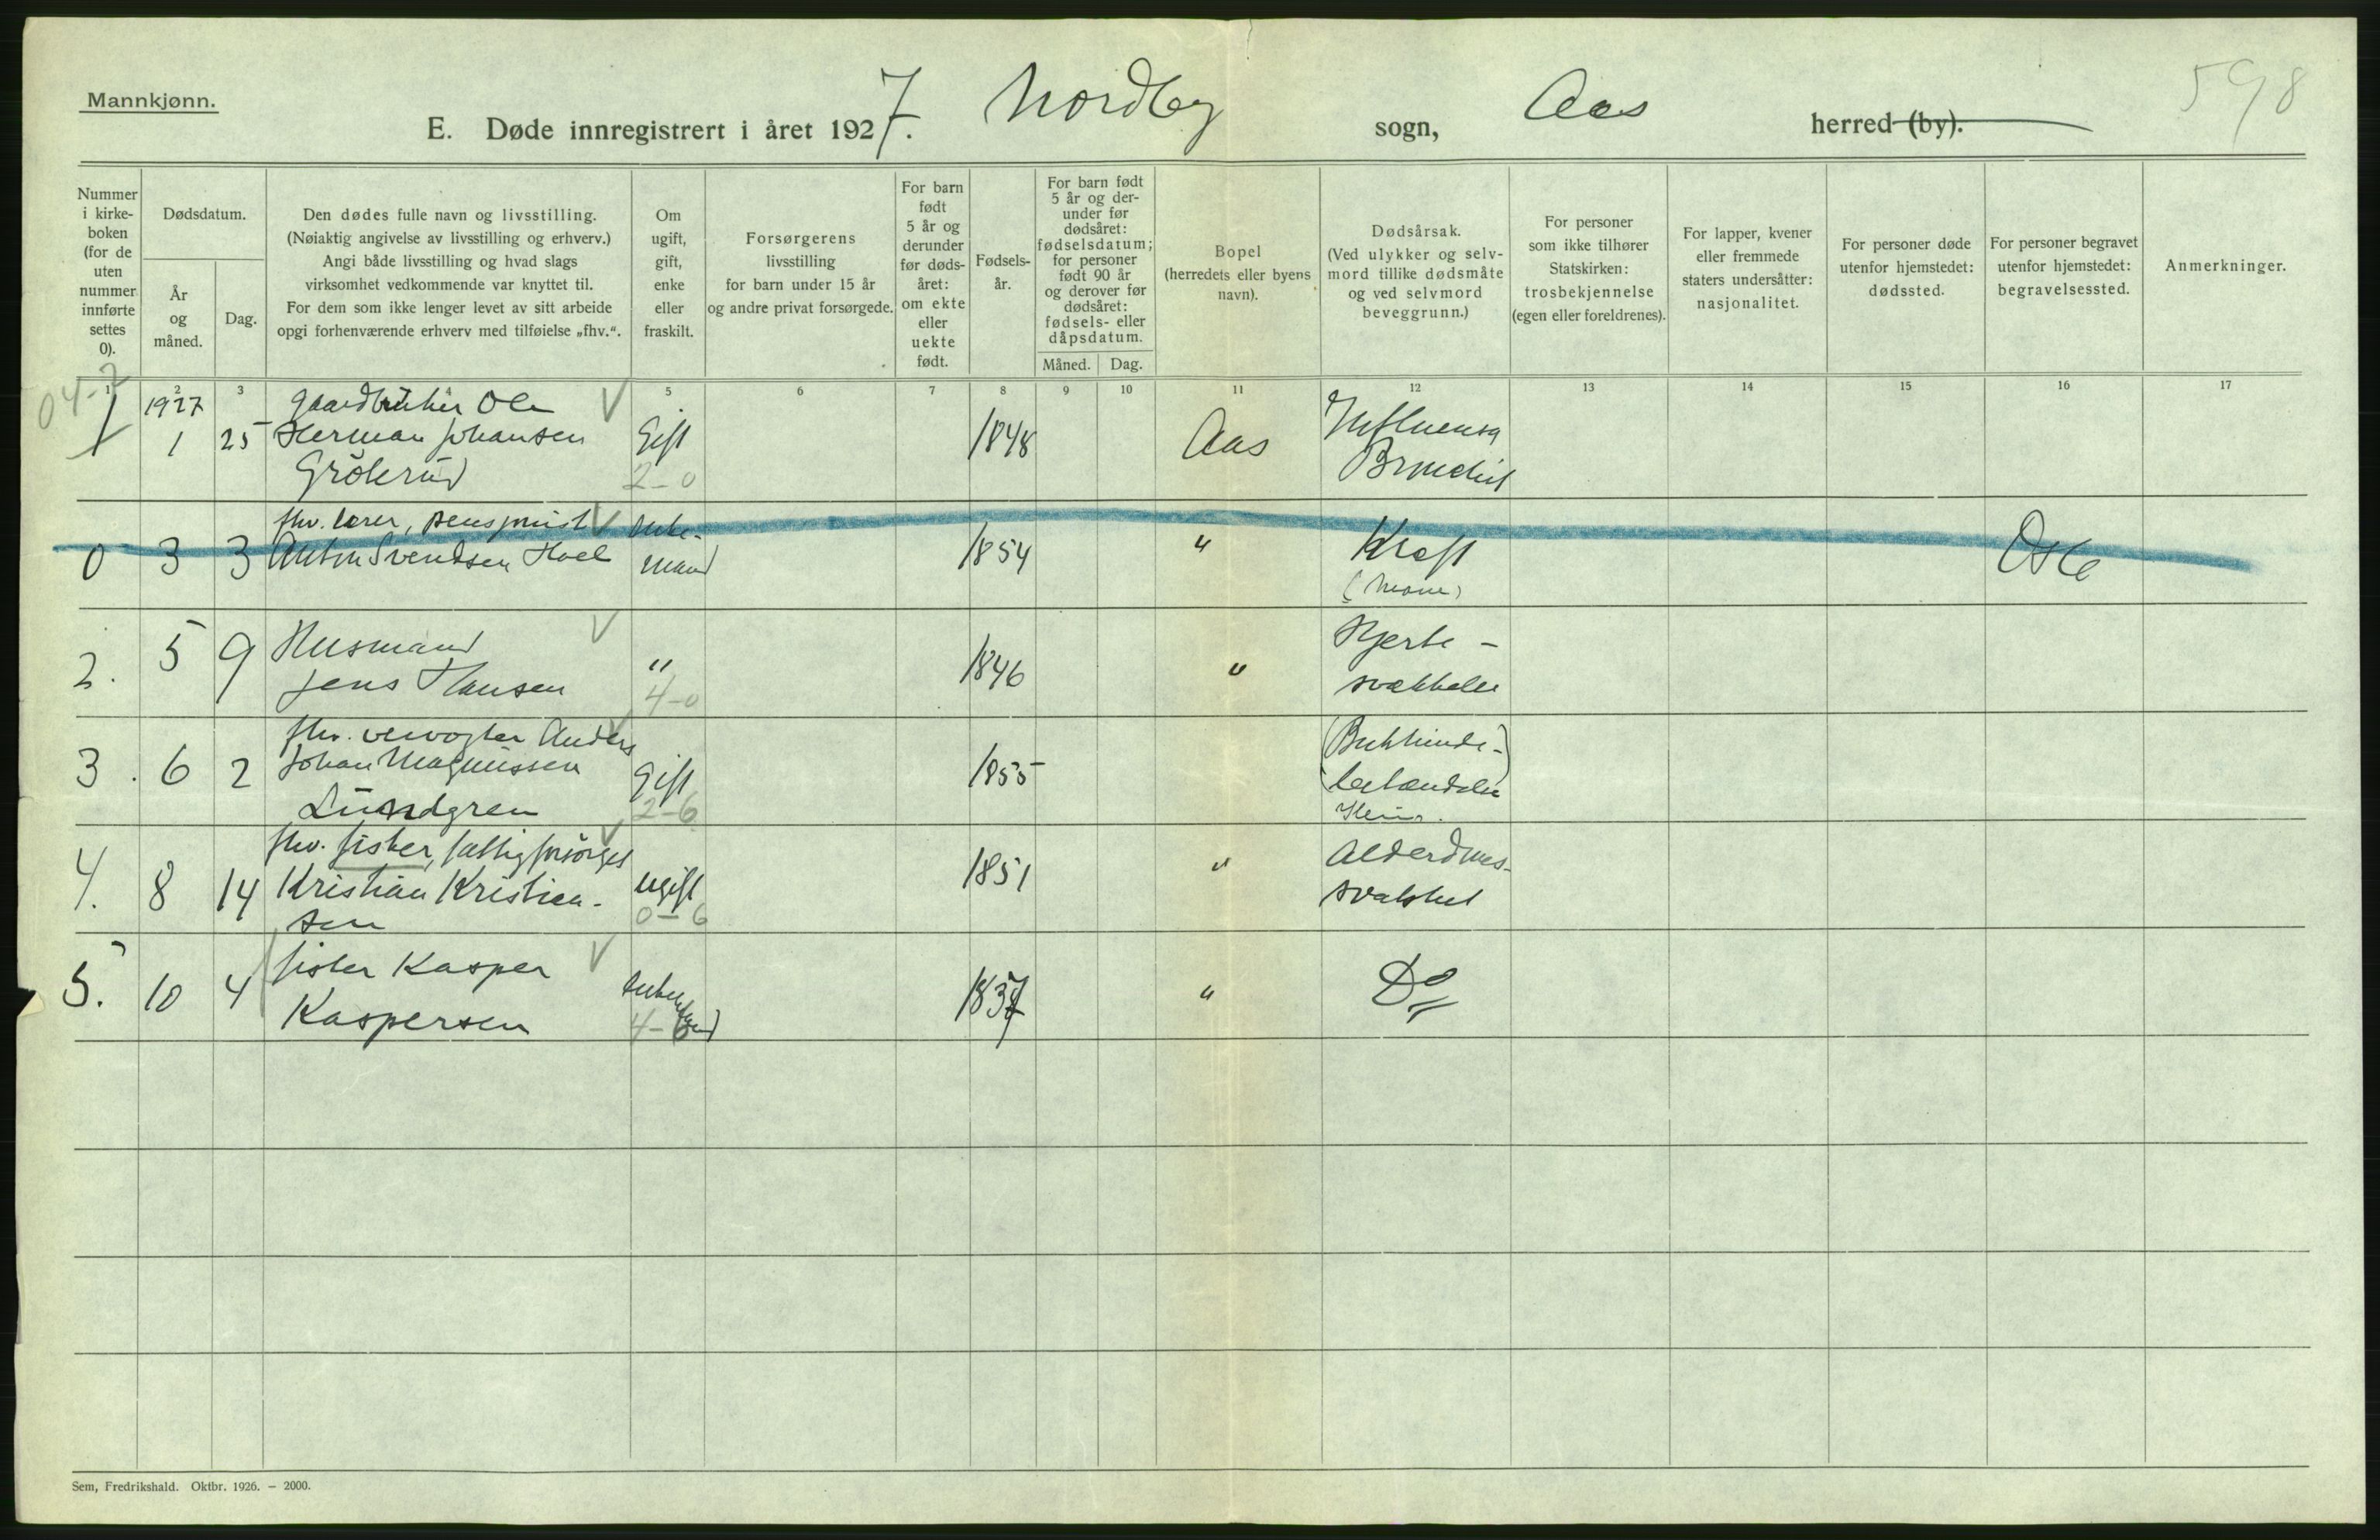 Mannkjønn.
E. Døde innregistrert i året 1927. Nordby sogn, Aas herred (by).
598
Nummer i kirke-boken (for de uten nummer innførte settes 0).
Dødsdatum.
År og måned.
Dag.
Den dødes fulle navn og livsstilling.
(Nøiaktig angivelse av livsstilling og erhverv.)
Angi både livsstilling og hvad slags
virksomhet vedkommende var knyttet til.
For dem som ikke lenger levet av sitt arbeide
opgi forhenværende erhverv med tilføielse „fhv.“.
Om
ugift,
gift,
enke
eller
fraskilt.
Forsørgerens
livsstilling
for barn under 15 år
og andre privat forsørgede.
For barn
født
5 år og
derunder
før døds-
året:
om ekte
eller
uekte
født.
Fødsels-
år.
For barn født
5 år og der-
under før
dødsåret:
fødselsdatum;
for personer
født 90 år
og derover før
dødsåret:
fødsels- eller
dåpsdatum.
Måned. Dag.
Bopel
(herredets eller byens
navn).
Dødsårsak.
(Ved ulykker og selv-
mord tillike dødsmåte
og ved selvmord
beveggrunn.)
For personer
som ikke tilhører
Statskirken:
trosbekjennelse
(egen eller foreldrenes).
For lapper, kvener
eller fremmede
staters undersåtter:
nasjonalitet.
For personer døde
utenfor hjemstedet:
dødssted.
For personer begravet
utenfor hjemstedet:
begravelsessted.
Anmerkninger.
04-2
1 2 3 5 6 7 8 9 10 11 12 13 14 15 16 17
1 1927 1 25 Gaardbruker Ole
Herman Johansen
Grökerud
Gift 2-0 1848 Aas Influensa
Bronchit
0 3 3 fhv. lærer, pensjonist
Anton Svendsen Hoel
Enke-
mand
1854 " Kræft
Oslo
2. 5 9 Husmand
Jens Hansen
" 4-0 1846 " Hjerte-
svækkelse
3. 6 2 fhv. Anders
Johan Magnussen
Lundgren
Gift 2-6 1855 (Bukhinde-)
4. 8 14 fhv. fisker, fattigforsörget
Kristian Kristian-
sen
ugift 0-6 1851 " Alderdoms-
svakhet
5. 10 4 fisker Kasper
Kaspersen
Enkemand 4-6 1837 " Do
Sem, Fredrikshald. Oktbr. 1926. — 2000.